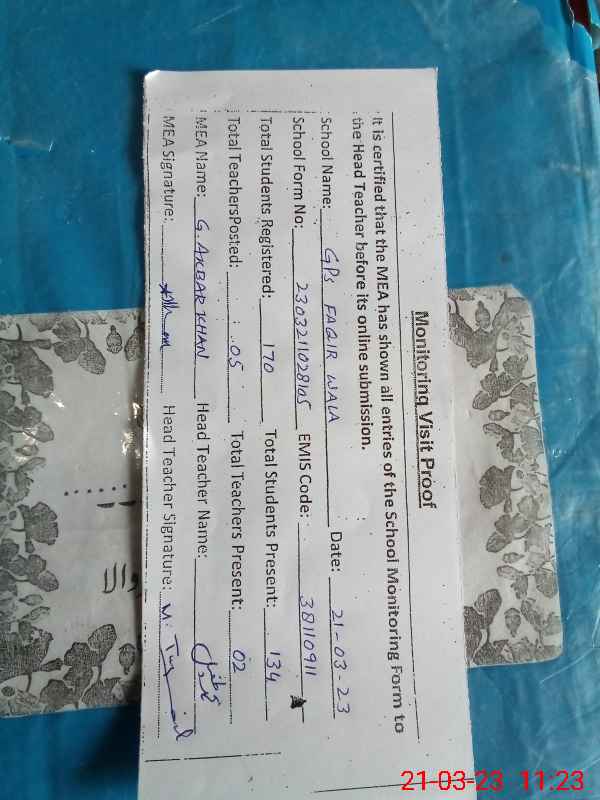 Monitoring Visit Proof
It is certified that the MEA has shown all entries of the School Monitoring Form to
the Head Teacher before its online submission.
School Name: GPS FAQIR WALA Date: 21-03-23
School Form No: 2303211028105 EMIS Code: 38110911
Total Students Registered: 170 Total Students Present: 134
Total TeachersPosted: 05 Total Teachers Present: 02
MEA Name: G. AKBAR KHAN Head Teacher Name:
MEA Signature: Head Teacher Signature:
21-03-23 11:23